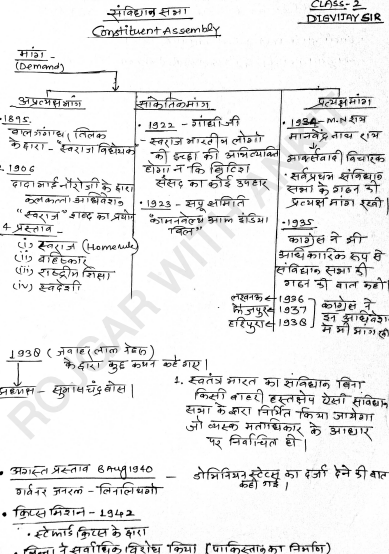 संविधान सभा
Constituent Assembly
CLASS-2
DIGVIJAY SIR
मांग
(Demand)
अप्रत्यक्ष मांग
सांकेतिक मांग
प्रत्यक्ष मांग
1895.
बाल गंगाधर तिलक
के द्वारा - "स्वराज विधेयक"
1906
दादा भाई नौरोजी के द्वारा
कलकत्ता अधिवेशन
"स्वराज" शब्द का प्रयोग
4 प्रस्ताव -
(i) स्वराज (Homerule)
(ii) बहिष्कार
(iii) राष्ट्रीय शिक्षा
(iv) स्वदेशी
• 1922 - गांधी जी
- स्वराज भारतीय लोगों
की इच्छा की अभिव्यक्ति
होगा न कि ब्रिटिश
संसद का कोई उपहार
• 1923 - सप्रू समिति
"कामनवेल्थ आफ इंडिया
बिल"
• 1934 - M.N राय
मानवेन्द्र नाथ राय
मार्क्सवादी विचारक
• सर्वप्रथम संविधान
सभा के गठन की
प्रत्यक्ष मांग रखी।
• 1935
कांग्रेस ने भी
आधिकारिक रूप से
संविधान सभा की
गठन की बात कही।
लखनऊ - 1936
फैजपुर - 1937
हरिपुरा - 1938
कांग्रेस ने
इन अधिवेशन
में भी मांग रखी
1938 (जवाहर लाल नेहरू
के द्वारा कुछ कथन कहे गए।
अध्यक्ष - सुभाष चन्द्र बोस।
1. स्वतंत्र भारत का संविधान बिना
किसी बाहरी हस्तक्षेप ऐसी संविधान
सभा के द्वारा निर्मित किया जायेगा
जो व्यस्क मताधिकार के आधार
पर निर्वाचित हो।
• अगस्त प्रस्ताव 8 Aug 1940
गवर्नर जनरल - लिनलिथगो
डोमिनियन स्टेट्स का दर्जा देने की बात
कही गई।
• क्रिप्स मिशन - 1942
• स्टेफार्ड क्रिप्स के द्वारा
जिन्ना ने सर्वाधिक विरोध किया [पाकिस्तान का निर्माण]
ROJGAR WITH